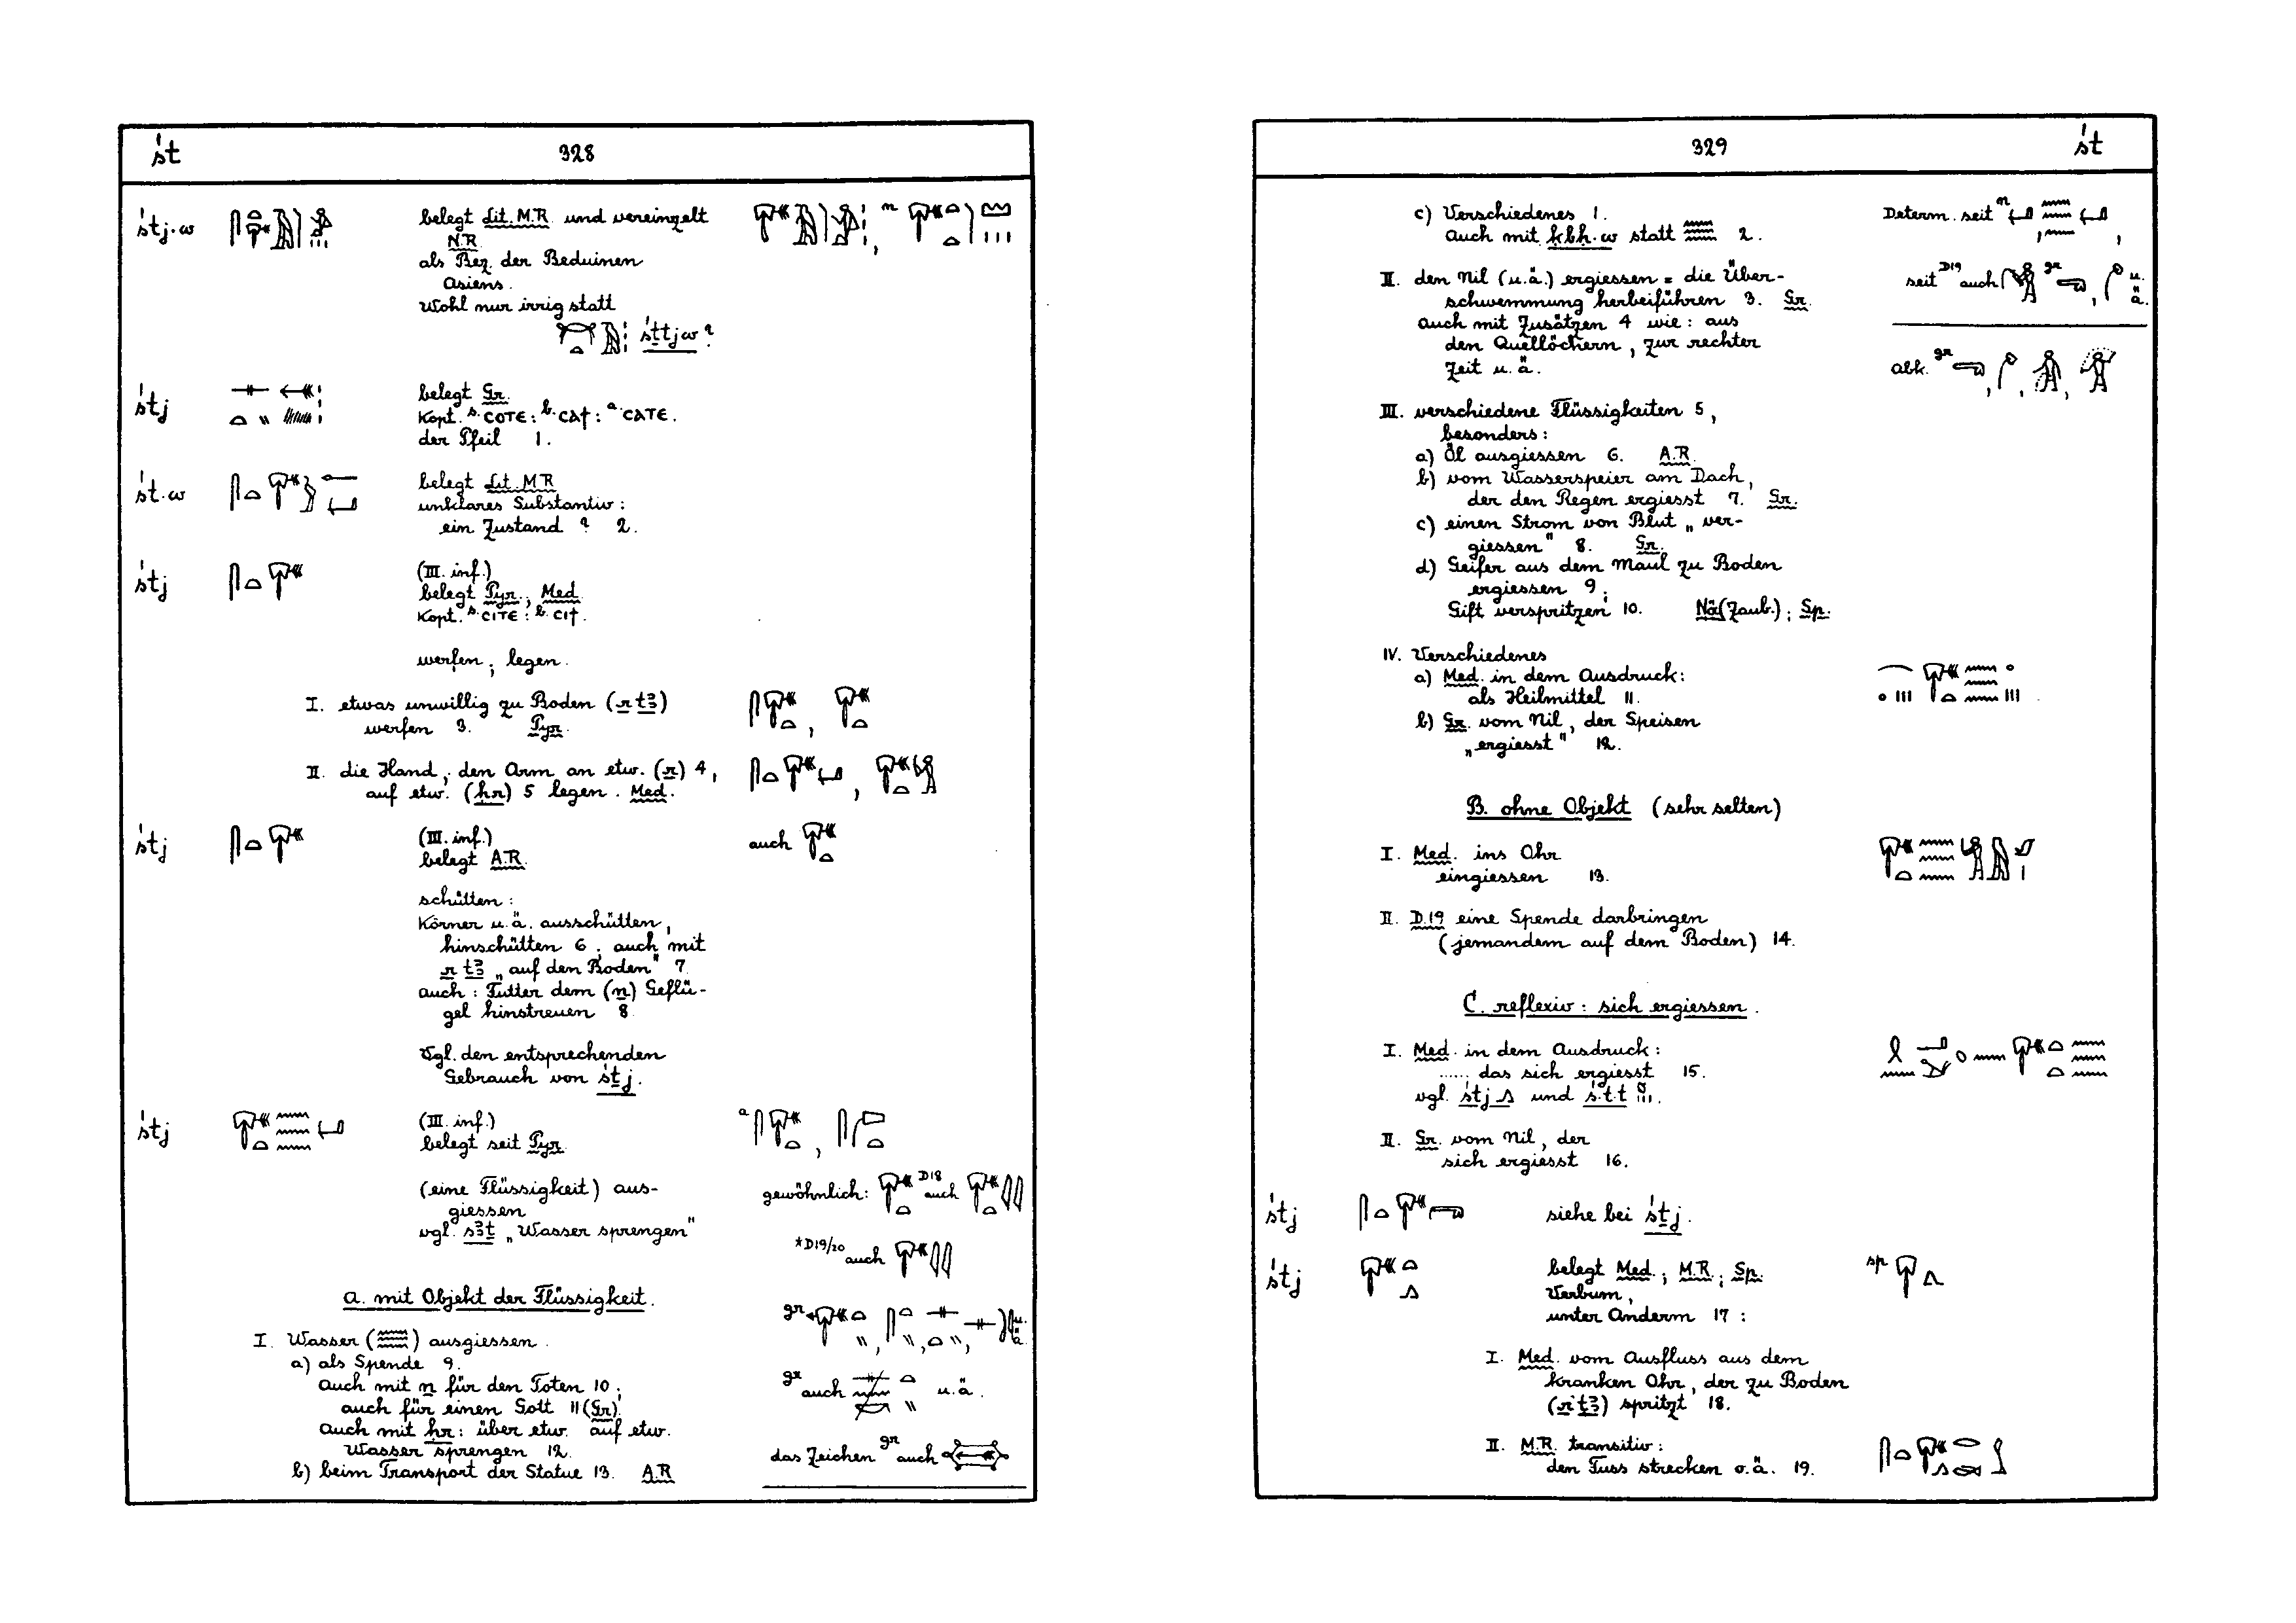 śt 328
śtj·w belegt Lit. M.R. und vereinzelt
N.R.
als Bez. der Beduinen
Asiens.
Wohl nur irrig statt
śttjw ?
śtj belegt Gr.
Kopt. s. ⲥⲟⲧⲉ : b. ⲥⲁϯ : a. ⲥⲁⲧⲉ.
der Pfeil 1.
śt·w belegt Lit. M.R.
unklares Substantiv :
ein Zustand ? 2.
śtj (III. inf.)
belegt Pyr., Med.
Kopt. s. ⲥⲓⲧⲉ : b. ⲥⲓϯ.
werfen; legen.
I. etwas unwillig zu Boden (r tꜣ)
werfen 3. Pyr.
II. die Hand, den Arm an etw. (r) 4,
auf etw. (ḥr) 5 legen. Med.
śtj (III. inf.) auch
belegt A.R.
schütten :
Körner u.ä. ausschütten,
hinschütten 6; auch mit
r tꜣ „auf den Boden" 7
auch : Futter dem (n) Geflü-
gel hinstreuen 8
Vgl. den entsprechenden
Gebrauch von śṯj.
śtj (III. inf.) a
belegt seit Pyr.
(eine Flüssigkeit) aus- gewöhnlich: D18 auch
giessen
vgl. sꜣṯ „Wasser sprengen"
*D19/20 auch
A. mit Objekt der Flüssigkeit.
gr u. ä.
I. Wasser ( ) ausgiessen.
a) als Spende 9.
auch mit n für den Toten 10; gr auch u.ä.
auch für einen Gott 11 (Gr.)
auch mit ḥr : über etw. auf etw.
Wasser sprengen 12. das Zeichen gr auch
b) beim Transport der Statue 13. A.R
329 śt
c) Verschiedenes 1. Determ. seit n
auch mit ḳbḥ·w statt 2.
II. den Nil (u.ä.) ergiessen = die Über- seit D19 auch gr u. ä.
schwemmung herbeiführen 3. Gr.
auch mit Zusätzen 4 wie : aus
den Quellöchern, zur rechter
Zeit u.ä. abk. gr
III. verschiedene Flüssigkeiten 5,
besonders :
a) Öl ausgiessen 6. A.R.
b) vom Wasserspeier am Dach,
der den Regen ergiesst 7. Gr.
c) einen Strom von Blut „ver-
giessen" 8. Gr.
d) Geifer aus dem Maul zu Boden
ergiessen 9;
Gift verspritzen 10. Nä (Zaub.); Sp.
IV. Verschiedenes
a) Med. in dem Ausdruck :
als Heilmittel 11.
b) Gr. vom Nil, der Speisen
„ergiesst" 12.
B. ohne Objekt (sehr selten)
I. Med. ins Ohr
eingiessen 13.
II. D.19 eine Spende darbringen
(jemandem auf dem Boden) 14.
C. reflexiv : sich ergiessen.
I. Med. in dem Ausdruck :
...... das sich ergiesst 15.
vgl. śtj und śt·t
II. Gr. vom Nil, der
sich ergiesst 16.
śtj siehe bei śṯj.
śtj belegt Med.; M.R.; Sp. sp
Verbum,
unter Anderm 17 :
I. Med. vom Ausfluss aus dem
kranken Ohr, der zu Boden
(r tꜣ) spritzt 18.
II. M.R. transitiv :
den Fuss strecken o.ä. 19.